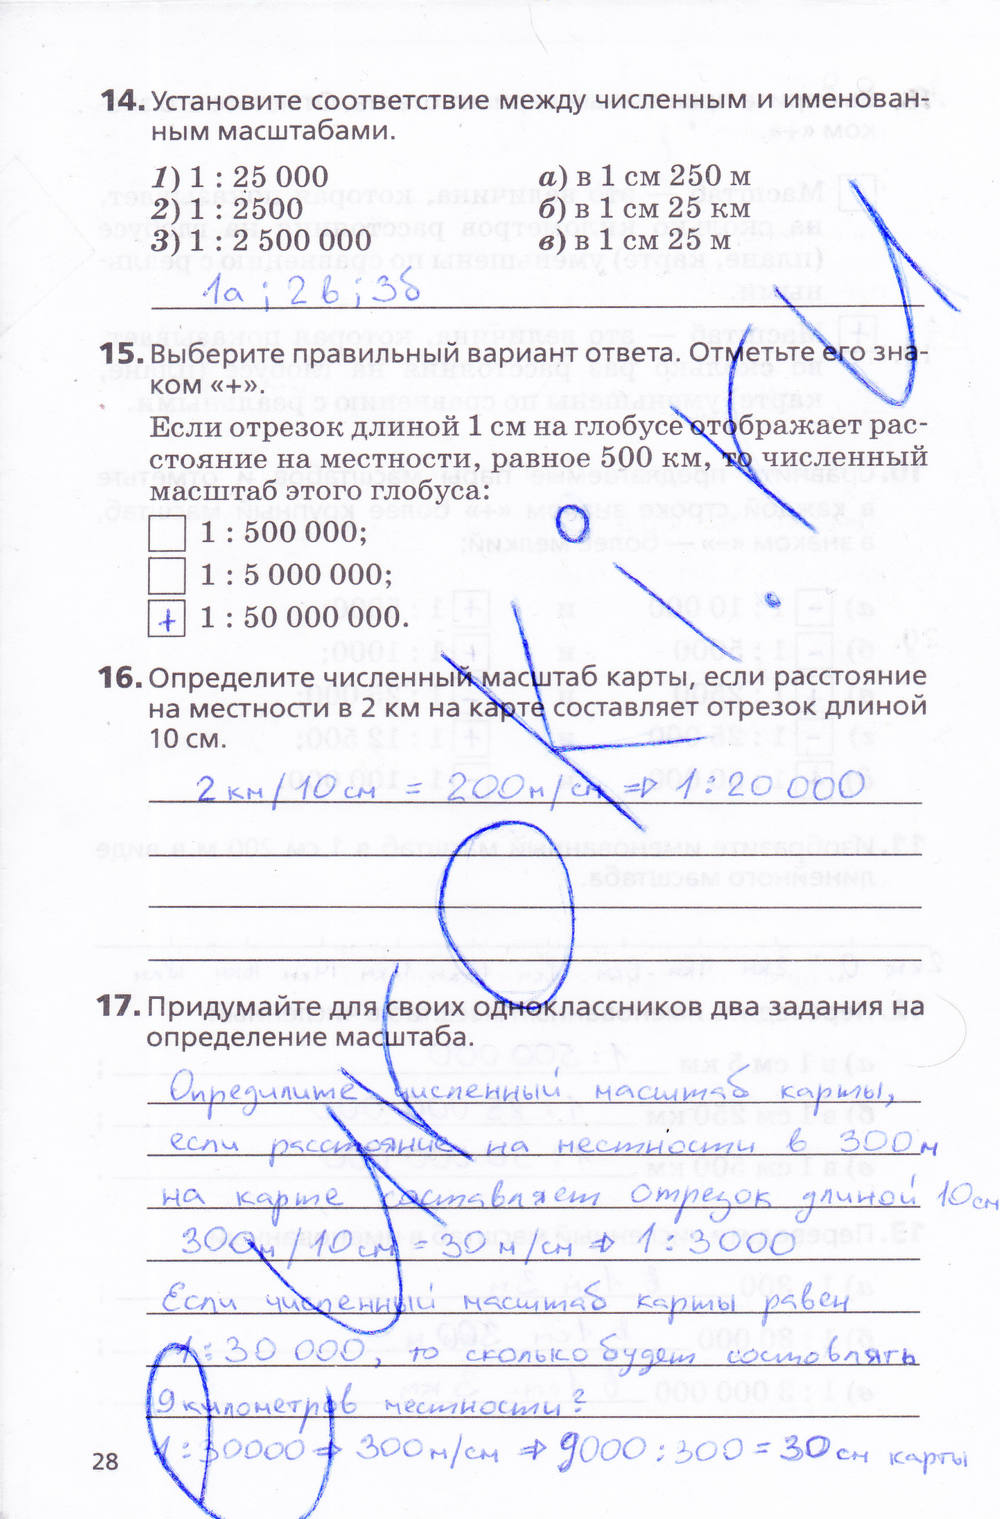 14. Установите соответствие между численным и именован-
ным масштабами.
1) 1 : 25 000 а) в 1 см 250 м
2) 1 : 2500 б) в 1 см 25 км
3) 1 : 2 500 000 в) в 1 см 25 м
1а ; 2в ; 3б
15. Выберите правильный вариант ответа. Отметьте его зна-
ком «+».
Если отрезок длиной 1 см на глобусе отображает рас-
стояние на местности, равное 500 км, то численный
масштаб этого глобуса:
1 : 500 000;
1 : 5 000 000;
+ 1 : 50 000 000.
16. Определите численный масштаб карты, если расстояние
на местности в 2 км на карте составляет отрезок длиной
10 см.
2 км/10 см = 200 м/см ⇒ 1:20 000
17. Придумайте для своих одноклассников два задания на
определение масштаба.
Опредилите численный масштаб карты,
если расстояние на местности в 300 м
на карте составляет отрезок длиной 10 см
300м/10 см = 30 м/см ⇒ 1:3000
Если численный масштаб карты равен
1:30 000, то сколько будет состовлять
9 километров местности?
1:30000 ⇒ 300 м/см ⇒ 9000:300 = 30 см карты
28